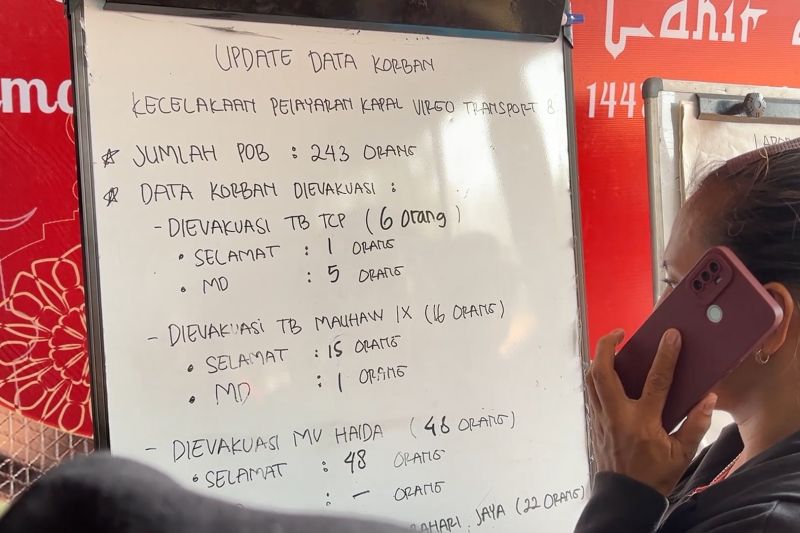 UPDATE DATA KORBAN
KECELAKAAN PELAYARAN KAPAL VIRGO TRANSPORT 8
☆ JUMLAH POB : 243 ORANG
☆ DATA KORBAN DIEVAKUASI :
- DIEVAKUASI TB TCP (6 orang)
• SELAMAT : 1 ORANG
• MD : 5 ORANG
- DIEVAKUASI TB MAUHAW IX (16 ORANG)
• SELAMAT : 15 ORANG
• MD : 1 ORANG
- DIEVAKUASI MV HAIDA (48 ORANG)
• SELAMAT : 48 ORANG
: - ORANG
AHARI JAYA (22 ORANG)
Lahir
144